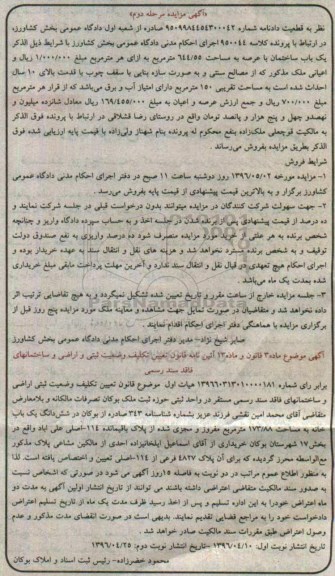 «آگهی مزایده مرحله دوم»
نظر به قطعیت دادنامه شماره ۹۵۰۹۹۸۴۴۵۴۳۰۰۰۴۲ صادره از شعبه اول دادگاه عمومی بخش کشاورز
در ارتباط با پرونده کلاسه ۹۵۰۰۴۴ اجرای احکام مدنی دادگاه عمومی بخش کشاورز با شرایط ذیل الذکر
یک باب ساختمان با عرصه به مساحت ۶۴۴/۵۵ مترمربع به ازای هر مترمربع مبلغ ۱/۰۰۰/۰۰۰ ریال و
اعیانی ملک مذکور که از مصالح سنتی و به صورت سازه بنایی با سقف چوب با قدمت بالای ۱۰ سال
احداث شده است به مساحت تقریبی ۱۵۰ مترمربع دارای امتیاز آب و برق می‌باشد که از قرار هر مترمربع
مبلغ ۷۰۰/۰۰۰ ریال و جمع ارزش عرصه و اعیان به مبلغ ۱۶۹/۴۵۵/۰۰۰ ریال معادل شانزده میلیون و
نهصدو چهل و پنج هزار و پانصد تومان واقع در روستای رضا قشلاقی در ارتباط با پرونده فوق الذکر
به مالکیت قوجعلی ملک‌زاده بنفع محکوم له پرونده بنام شهناز ولی‌زاده با قیمت پایه ارزیابی شده فوق
الذکر بطریق مزایده بفروش می‌رساند.
شرایط فروش
۱- مزایده مورخه ۱۳۹۶/۰۵/۰۲ روز دوشنبه ساعت ۱۱ صبح در دفتر اجرای احکام مدنی دادگاه عمومی
کشاورز برگزار و به بالاترین قیمت پیشنهادی از قیمت پایه بفروش می‌رسد.
۲- جهت سهولت شرکت کنندگان در مزایده میتوانند بدون درخواست قبلی در جلسه شرکت نمایند و
ده درصد از قیمت پیشنهادی پس از برنده شدن در جلسه اخذ و به حساب سپرده دادگاه واریز و چنانچه
شخص برنده به هر علتی از خرید مورد مزایده منصرف شود ده درصد واریزی به نفع صندوق دولت
توقیف و به شخص برنده مسترد نخواهد شد و هزینه های نقل و انتقال سند به عهده خریدار بوده و
اجرای احکام هیچ تعهدی در قبال نقل و انتقال سند ندارد و آخرین مهلت پرداخت مابقی مبلغ خریداری
شده بمدت یک ماه می‌باشد.
۳- جلسه مزایده خارج از ساعت مقرر و تاریخ تعیین شده تشکیل نمیگردد و به هیچ تقاضایی ترتیب اثر
داده نخواهد شد و متقاضیان در صورت تمایل جهت مشاهده و معاینه ملک مورد مزایده پنج روز قبل از
برگزاری مزایده با هماهنگی دفتر اجرای احکام اقدام نمایند.
صابر شیخ نژاد- مدیر دفتر اجرای احکام مدنی دادگاه عمومی بخش کشاورز
آگهی موضوع ماده ۳ قانون و ماده ۱۳ آئین نامه قانون تعیین تکلیف وضعیت ثبتی و اراضی و ساختمانهای
فاقد سند رسمی
برابر رای شماره ۱۳۹۶۶۰۳۱۳۰۱۰۰۰۰۱۸۱ هیات اول موضوع قانون تعیین تکلیف وضعیت ثبتی اراضی
و ساختمانهای فاقد سند رسمی مستقر در واحد ثبتی حوزه ثبت ملک بوکان تصرفات مالکانه و بلامعارض
متقاضی آقای محمد امین نقشی فرزند عزیز بشماره شناسنامه ۳۴۳ صادره از بوکان در شش دانگ یک باب
خانه به مساحت ۱۷۳/۸۸ مترمربع مفروز و مجزی شده از پلاک باقیمانده ۱۱۴-اصلی علی اباد واقع در
بخش ۱۷ شهرستان بوکان خریداری از آقای اسماعیل ایلخانیزاده احدی از مالکین مشاعی پلاک مذکور
مع‌الواسطه محرز گردیده که برای آن پلاک ۴۸۲۷ فرعی از ۱۱۴-اصلی تعیین و اختصاص یافته است. لذا
به منظور اطلاع عموم مراتب در دو نوبت به فاصله ۱۵روز آگهی می شود در صورتی که اشخاص نسبت
به صدور سند مالکیت متقاضی اعتراضی داشته باشند می توانند از تاریخ انتشار اولین آگهی به مدت دو
ماه اعتراض خودرا به این اداره تسلیم و پس از اخذ رسید ظرف مدت یک ماه از تاریخ تسلیم اعتراض
دادخواست خود را به مراجع قضایی تقدیم نمایند. بدیهی است در صورت انقضای مدت مذکور و عدم
وصول اعتراض طبق مقررات سند مالکیت صادر خواهد شد.
تاریخ انتشار نوبت اول: ۱۳۹۶/۰۴/۱۰ -تاریخ انتشار نوبت دوم: ۱۳۹۶/۰۴/۲۵
محمود خضرزاده- رئیس ثبت اسناد و املاک بوکان